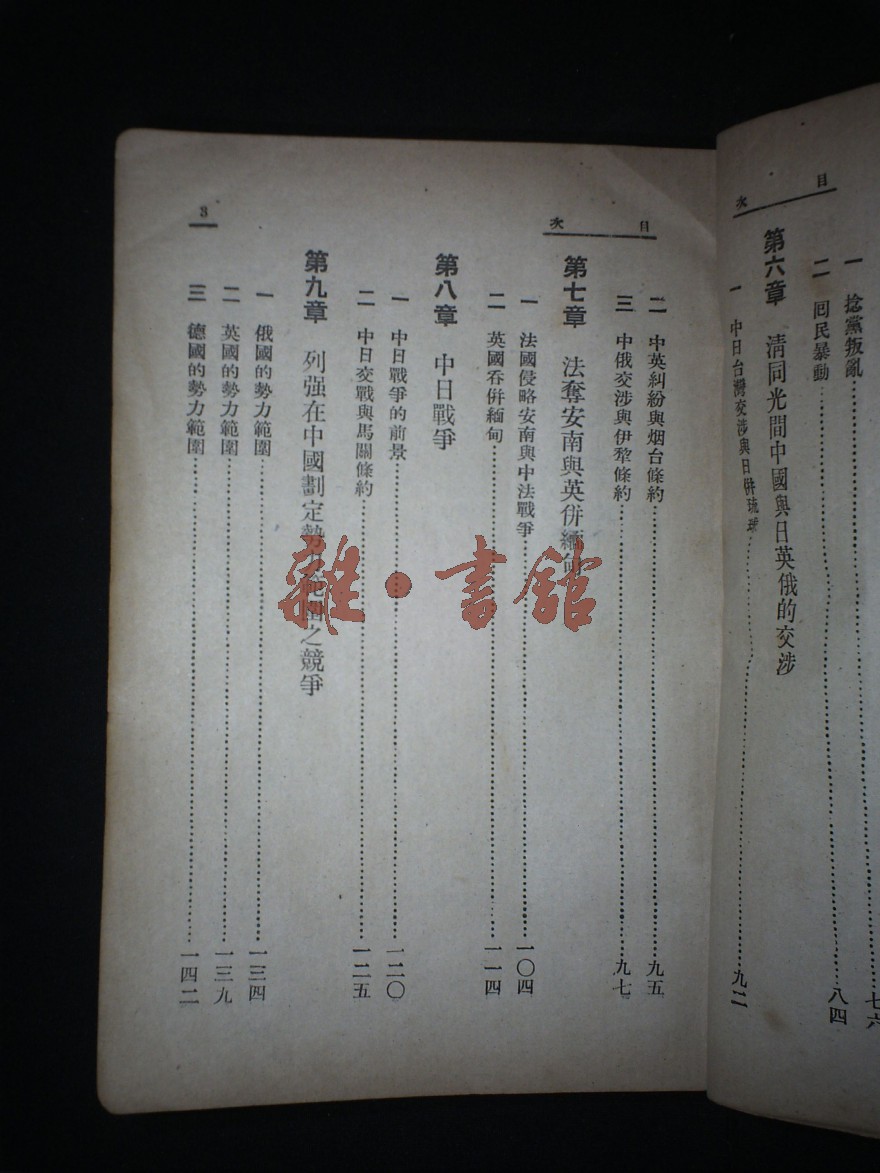 目次
一 捻黨叛亂……七六
二 回民暴動……八四
第六章 清同光間中國與日英俄的交涉
一 中日台灣交涉與日併琉球……九二
目次
二 中英糾紛與烟台條約……九五
三 中俄交涉與伊犂條約……九七
第七章 法奪安南與英併緬甸
一 法國侵略安南與中法戰爭……一〇四
二 英國吞併緬甸……一一四
第八章 中日戰爭
一 中日戰爭的前景……一二〇
二 中日交戰與馬關條約……一二五
第九章 列强在中國劃定勢力範圍之競爭
一 俄國的勢力範圍……一三四
二 英國的勢力範圍……一三九
三 德國的勢力範圍……一四二
3
雜·書館